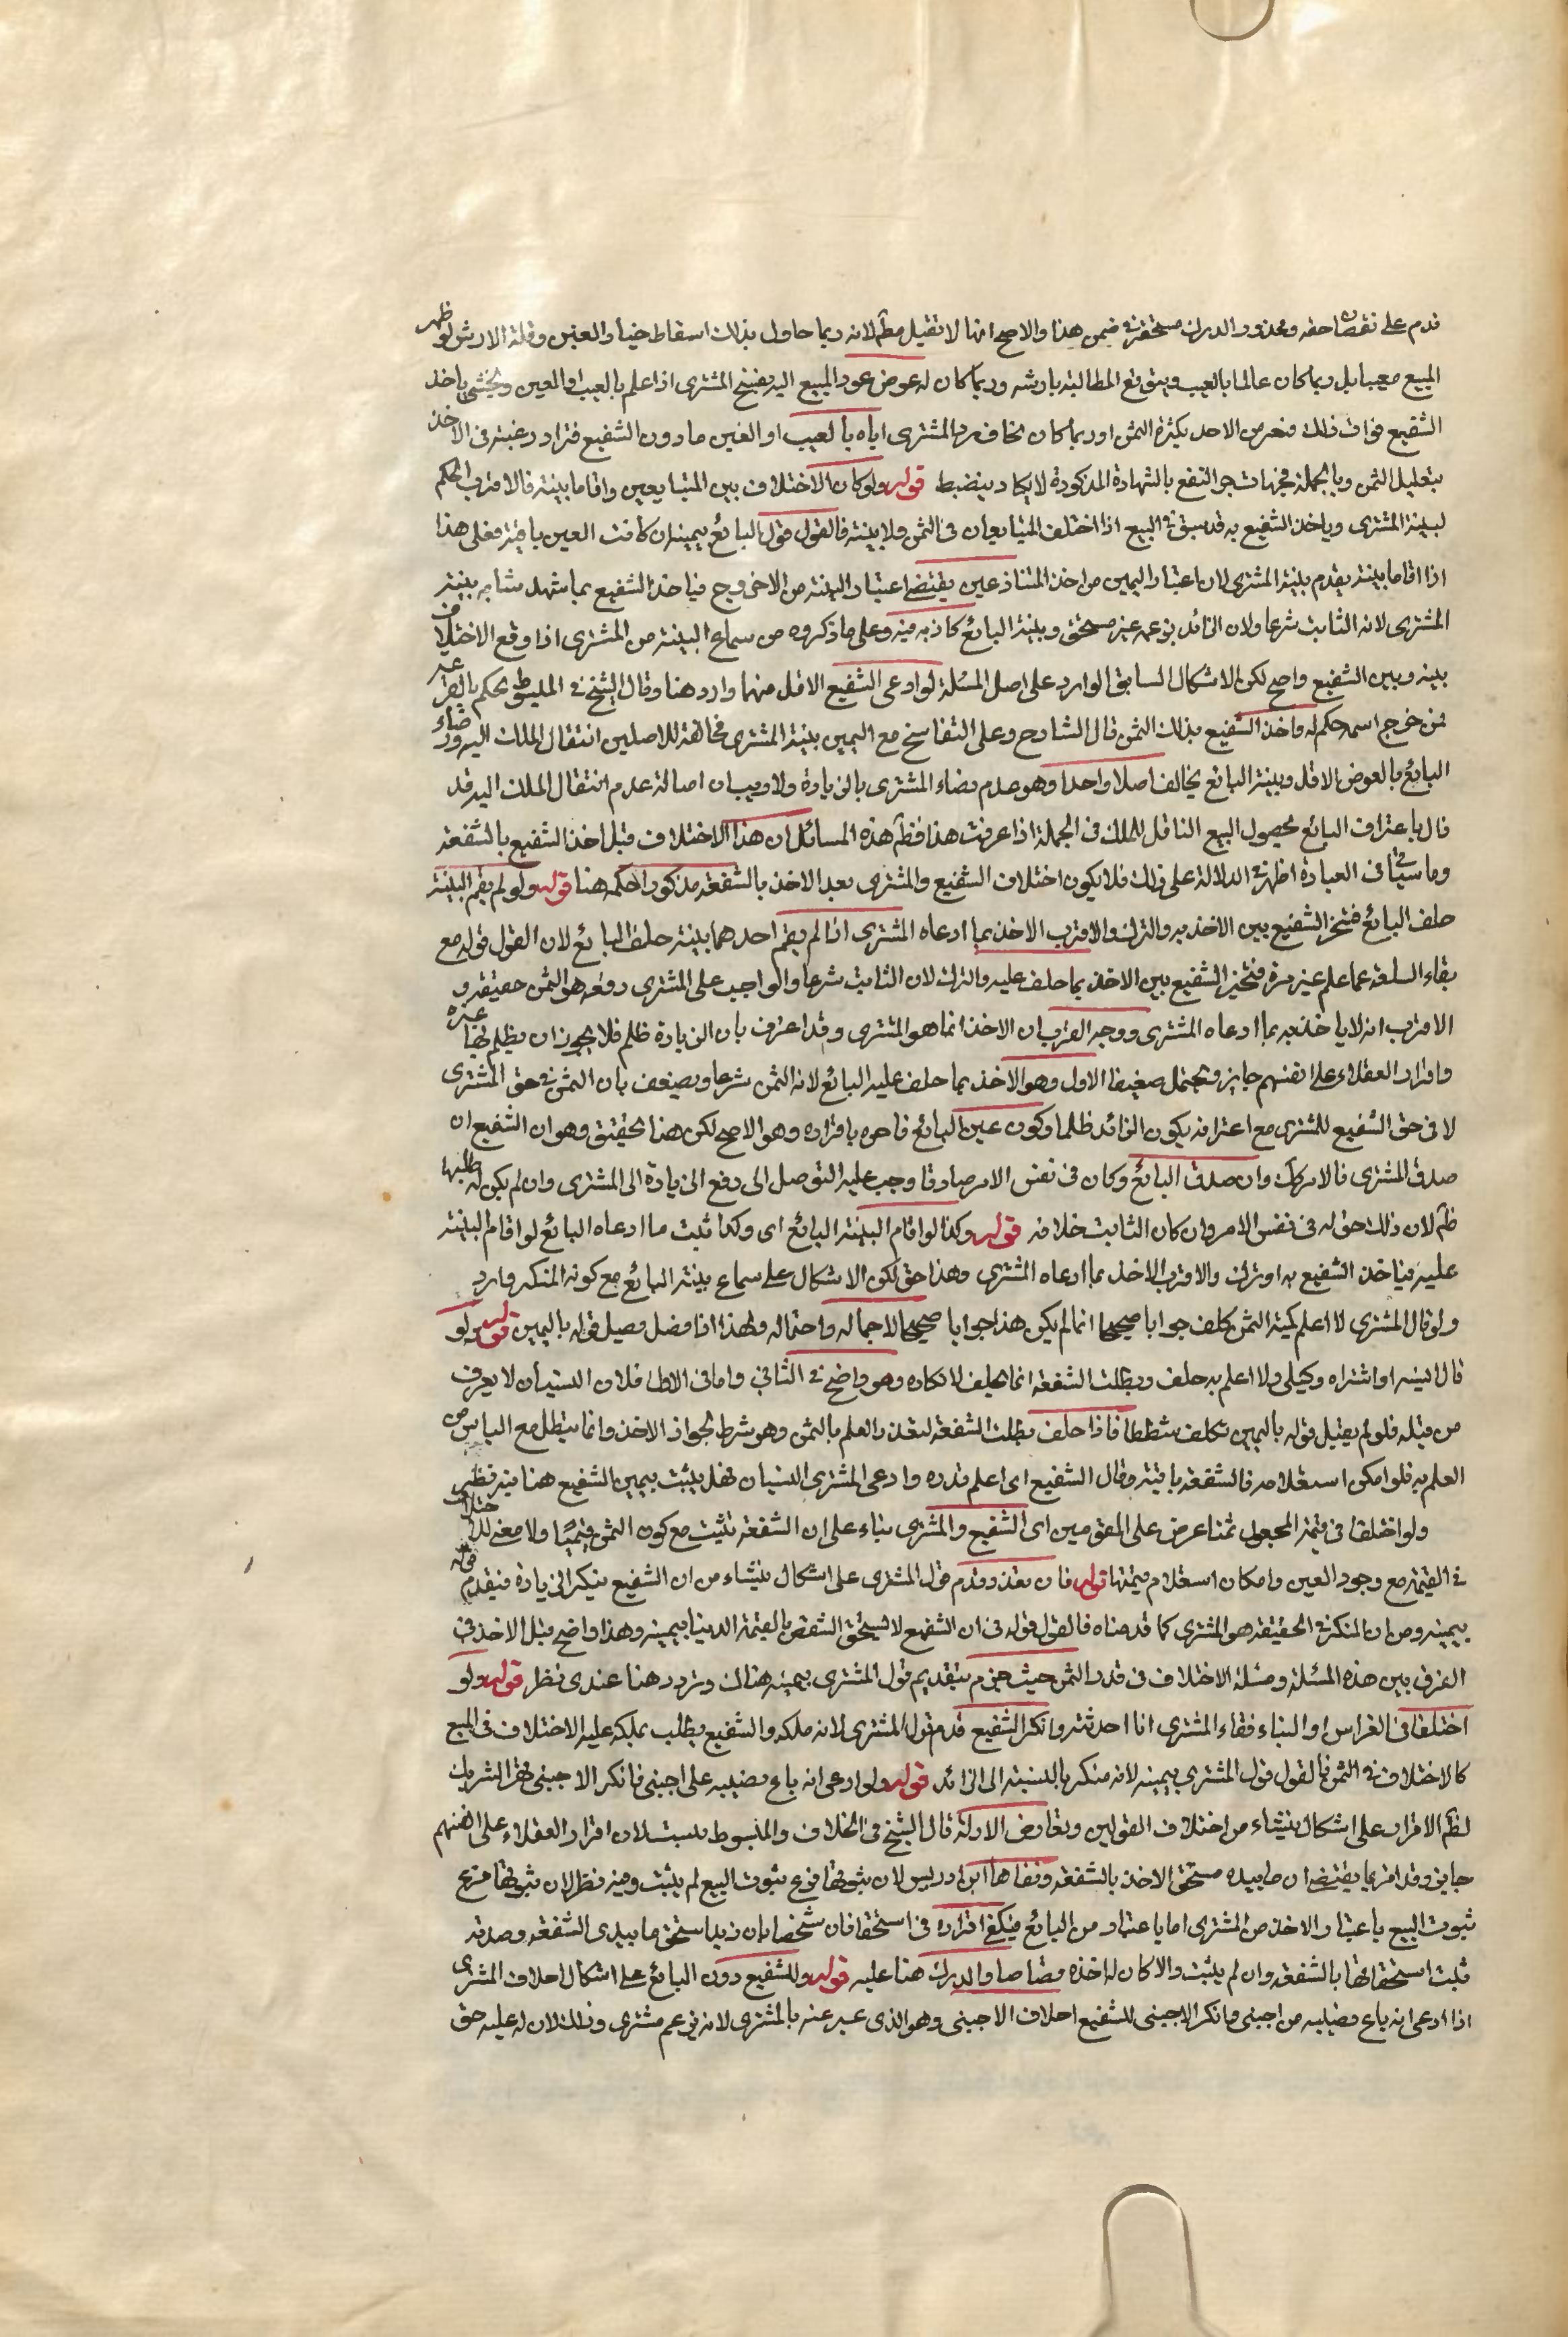 قدم على نقصان حقه ومحذور الدرك مستحقر في ضمن هذا والاصح انها لا تقبل مطلقا لانه ربما حاول بذلك اسقاط خيار الغبن وقلة الارش لو ظهر
المبيع معيبا بل ربما كان عالما بالعيب ويتوقع المطالبة بارشه وربما كان له عوض عود المبيع اليه بفسخ المشترى اذا علم بالعيب او الغبن ويخشى باخذ
الشفيع فوات ذلك او ربما كان يخاف رد المشترى اياه بالعيب او الغبن ما دون الشفيع فتزداد رغبته فى الاخذ
بتقليل الثمن وبالجملة فجهات جر النفع بالشهادة المذكورة لا يكاد ينضبط قوله ولو كان الاختلاف بين المتبايعين واقاما بينة فالاقرب الحكم
لبينة المشترى وياخذ الشفيع به قد سبق فى البيع اذا اختلف المتبايعان فى الثمن ولا بينة فالقول قول البائع بيمينه ان كانت العين باقية فعلى هذا
اذا اقاما بينة يقدم بينة المشترى لان اعتبار اليمين من احد المتنازعين يقتضى اعتبار البينة من الاخر وح فياخذ الشفيع بما شهد به بينة
المشترى لانه الثابت شرعا ولان الزائد بزعمه غير مستحق وبينة البائع كاذبة فيه وعلى ما ذكروه من سماع البينة من المشترى اذا وقع الاختلاف
بينه وبين الشفيع واضح لكن الاشكال السابق الوارد على اصل المسئلة لو ادعى الشفيع الاقل منهما وارد هنا وقال الشيخ فى المبسوط يحكم بالقرعة
فمن خرج اسمه حكم له واخذ الشفيع بذلك الثمن قال الشارح وعلى التفاسخ مع اليمين بينة المشترى مخالفة للاصلين انتقال الملك اليه ورضاء
البائع بالعوض الاقل وبينة البائع يخالف اصلا واحدا وهو عدم رضاء المشترى بالزيادة ولا ريب ان اصالة عدم انتقال الملك اليه قد
زال باعتراف البائع بحصول البيع الناقل للملك فى الجملة اذا عرفت هذا فظ هذه المسائل ان هذا الاختلاف قبل اخذ الشفيع بالشفعة
وما سيأتى فى العبارة اظهر فى الدلالة على ذلك فلا يكون اختلاف الشفيع والمشترى بعد الاخذ بالشفعة مذكور الحكم هنا قوله ولو لم يقم البينة
حلف البائع فتخير الشفيع بين الاخذ به والترك والاقرب الاخذ بما ادعاه المشترى اذا لم يقم احدهما بينة حلف البائع لان القول قوله مع
بقاء السلعة كما علم غير مرة فيتخير الشفيع بين الاخذ بما حلف عليه والترك لان الثابت شرعا والواجب على المشترى دفعه هو الثمن حقيقة و
الاقرب انه لا ياخذ به بما ادعاه المشترى ووجه القرب ان الاخذ انما هو المشترى وقد اعترف بان الزيادة ظلم فلا يجوز ان يظلم بها غيره
واقرار العقلاء على انفسهم جايز ويحتمل ضعيفا الاول وهو الاخذ بما حلف عليه البائع لانه الثمن شرعا ويضعف بان الثمن فى حق المشترى
لا فى حق الشفيع للمشترى مع اعترافه بكون الزائد ظلما وكون عين البائع باقراره وهو الاصح لكن هذا تحقيق وهو ان الشفيع ان
صدق المشترى فالامر كك وان صدق البائع وكان فى نفس الامر صادقا وجب عليه التوصل الى دفع الزيادة الى المشترى وان لم يكن له طلبها
ظ لان ذلك حق له فى نفس الامر وان كان الثابت خلافه قوله وكذا لو اقام البينة البائع اى وكذا ثبت ما ادعاه البائع لو اقام البينة
عليه فياخذ الشفيع به او يترك والاقرب الاخذ بما ادعاه المشترى وهذا حق لكن الاشكال على سماع بينة البائع مع كونه المنكر وارد
ولو قال المشترى لا اعلم كمية الثمن كلف جوابا صحيحا انما لم يكن هذا جوابا صحيحا لاجماله واحتماله ولهذا اذا فصل قوله باليمين قوله ولو
قال انسيته او اشتراه وكيلى ولا اعلم به حلف وبطلت الشفعة انما يحلف لانكاره وهو واضح فى الثانى واما فى الاول فلان النسيان لا يعرف
من قبله فلو لم يقبل قوله باليمين تكلف شططا فاذا حلف بطلت الشفعة لتعذر العلم بالثمن وهو شرط لجواز الاخذ وانما يبطل مع الياس من
العلم به فلو امكن استعلامه فالشفعة باقية وقال الشفيع اى اعلم قدره وادعى المشترى النسيان فهل يثبت بيمين الشفيع هنا فيه نظر
ولو اختلفا فى قيمة المجعول ثمنا عرض على المقومين اى الشفيع والمشترى بناء على ان الشفعة تثبت مع كون الثمن قيميا ولا معنى للاختلاف
فى القيمة مع وجود العين وامكان استعلام قيمتها قوله فان تعذر قدم قول المشترى على اشكال ينشاء من ان الشفيع ينكر الزيادة فيقدم قوله
بيمينه ومن ان المنكر فى الحقيقة هو المشترى كما قدمناه فالقول قوله فى ان الشفيع لا يستحق الشقص بالقيمة الدنيا بيمينه وهذا واضح قبل الاخذ فى
الفرق بين هذه المسئلة ومسئلة الاختلاف فى قدر الثمن حيث جزم بتقديم قول المشترى بيمينه هناك وتردد هنا عندى نظر قوله ولو
اختلفا فى الغراس او البناء فقاء المشترى انا احدثته وانكر الشفيع قدم قول المشترى لانه ملكه والشفيع يطلب تملكه عليه الاختلاف فى المبيع
كالاختلاف فى الثمن فالقول قول المشترى بيمينه لانه منكر بالنسبة الى الزائد قوله ولو ادعى انه باع نصيبه على اجنبى فانكر الاجنبى قضى الشريك
لظ الاقرار على اشكال ينشاء من اختلاف القولين وتعارض الادلة قال الشيخ فى الخلاف والمبسوط يثبت لان اقرار العقلاء على انفسهم
جايز وقد اقر بما يقتضى ان ما بيده مستحق الاخذ بالشفعة ونفاها ابن ادريس لان ثبوتها فرع ثبوت البيع لم يثبت وفيه نظر لان ثبوتها فرع
ثبوت البيع باعتبار الاخذ من المشترى اما باعتبار من البائع فيكفى اقراره فى استحقاق شخصا بان زيدا استحق ما بيدى الشفعة وصدقه
ثبت استحقاقها بالشفعة وان لم يثبت والا كان له اخذه قصاصا والدرك هنا عليه قوله وللشفيع دون البائع على اشكال احلاف المشترى
اذا ادعى انه باع نصيبه من اجنبى فانكر الاجنبى للشفيع احلاف الاجنبى وهو الذى عبر عنه بالمشترى لانه بزعمه مشترى وذلك لان له عليه حق